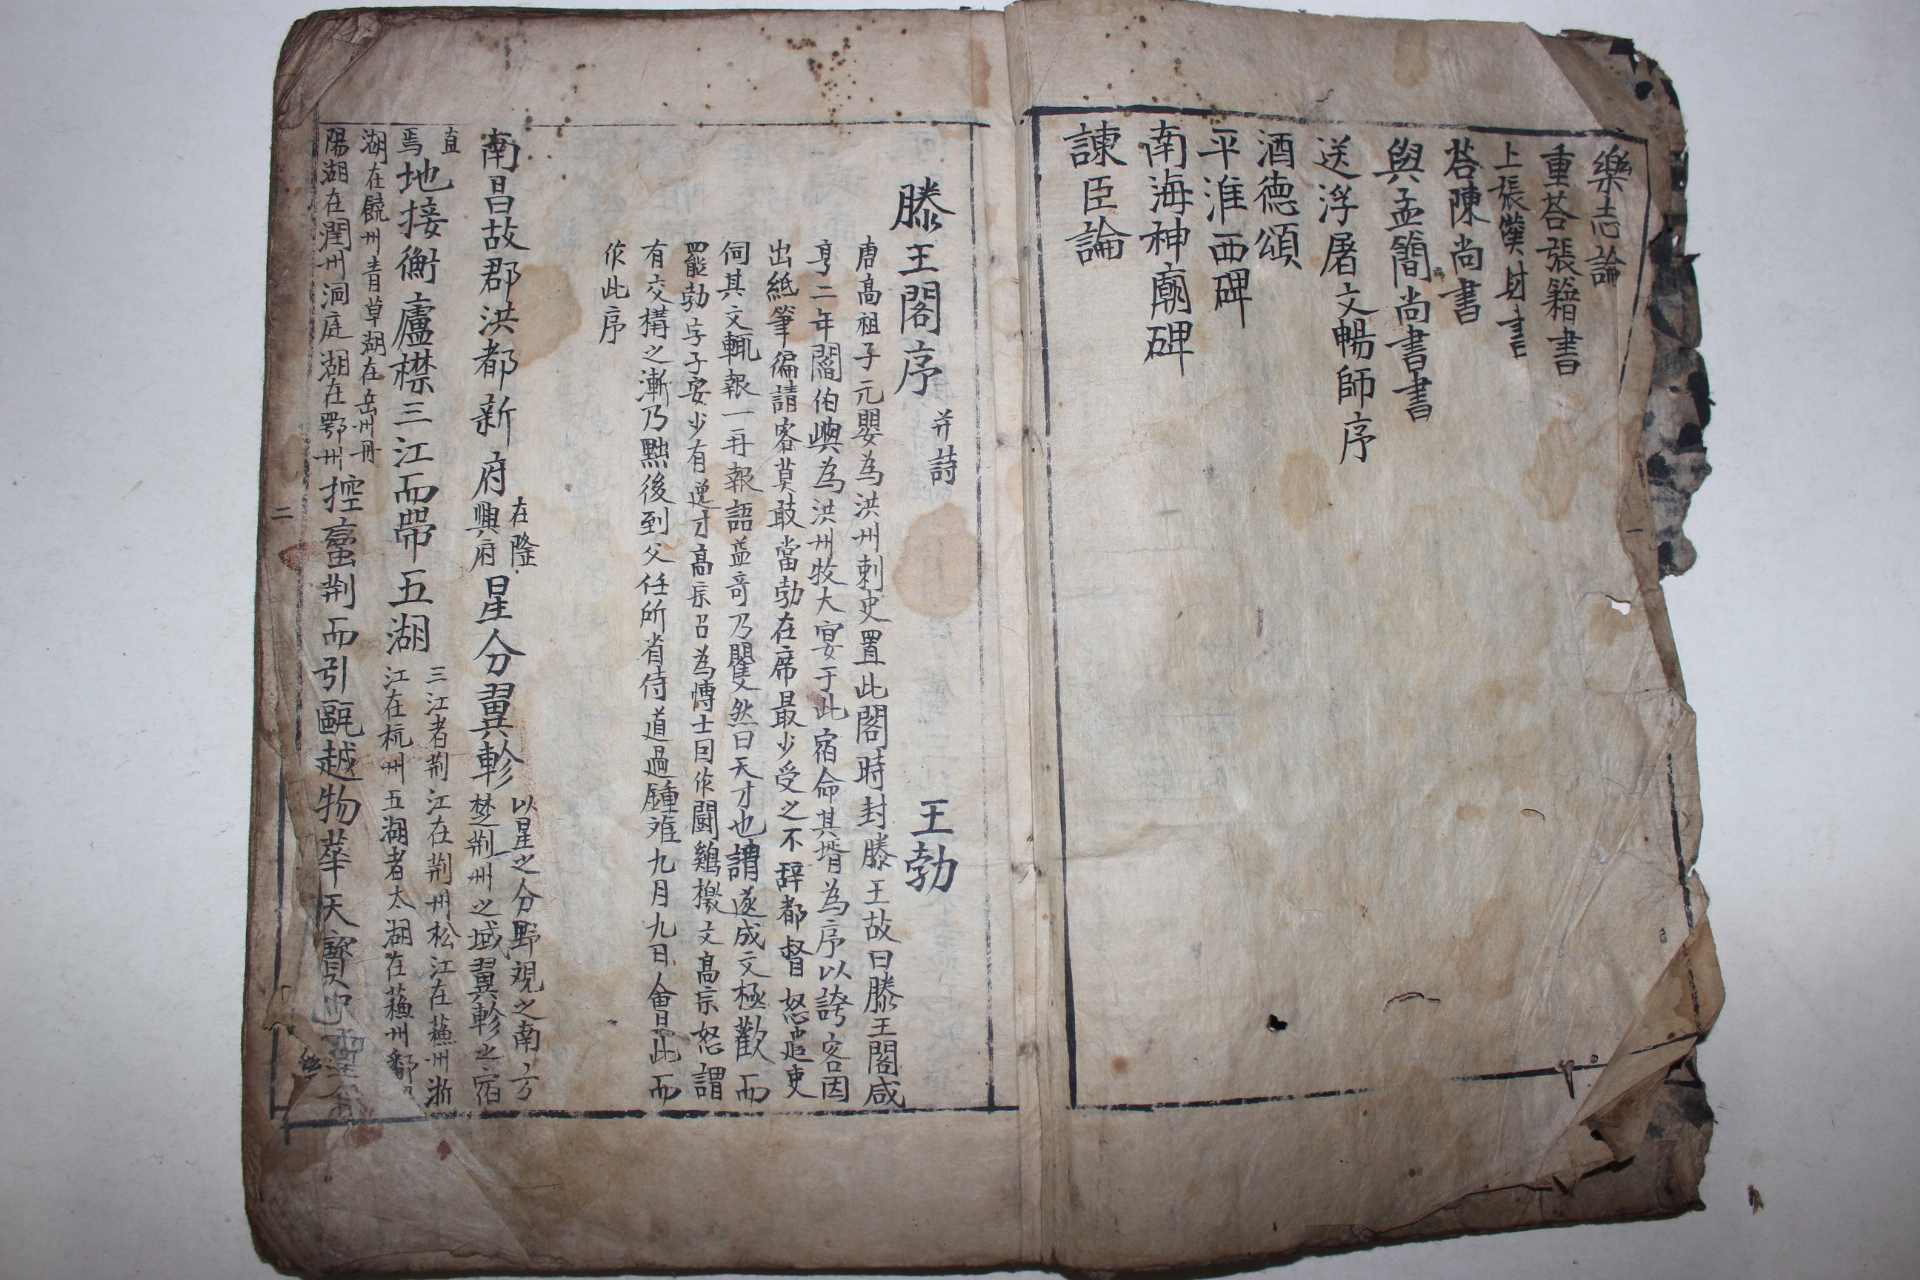 樂志論
重荅張籍書
上張僕射書
荅陳尚書
與孟簡尚書書
送浮屠文暢師序
酒德頌
平淮西碑
南海神廟碑
諫臣論
一
滕王閣序 并詩 王勃
唐高祖子元嬰為洪州刺史置此閣時封滕王故曰滕王閣咸
亨二年閻伯嶼為洪州牧大宴于此宿命其壻為序以誇客因
出紙筆徧請客莫敢當勃在席最少受之不辞都督怒遣吏
伺其文輒報一再報語益竒乃矍然曰天才也請遂成文極歡而
罷勃字子安少有逸才高宗召為愽士因作鬪鷄檄文高宗怒謂
有交搆之漸乃黜後到父任所省侍道過鍾䧹九月九日會此而
作此序
南昌故郡洪都新府 在隆興府 星分翼軫 以星之分野視之南方楚荆州之域翼軫之宿
直焉 地接衡廬襟三江而帶五湖 三江者荆江在荆州松江在蘓州浙江在杭州五湖者太湖在蘓州鄱
湖在饒州青草湖在岳州丹
陽湖在潤州洞庭湖在鄂州 控蠻荆而引甌越物華天寳
二